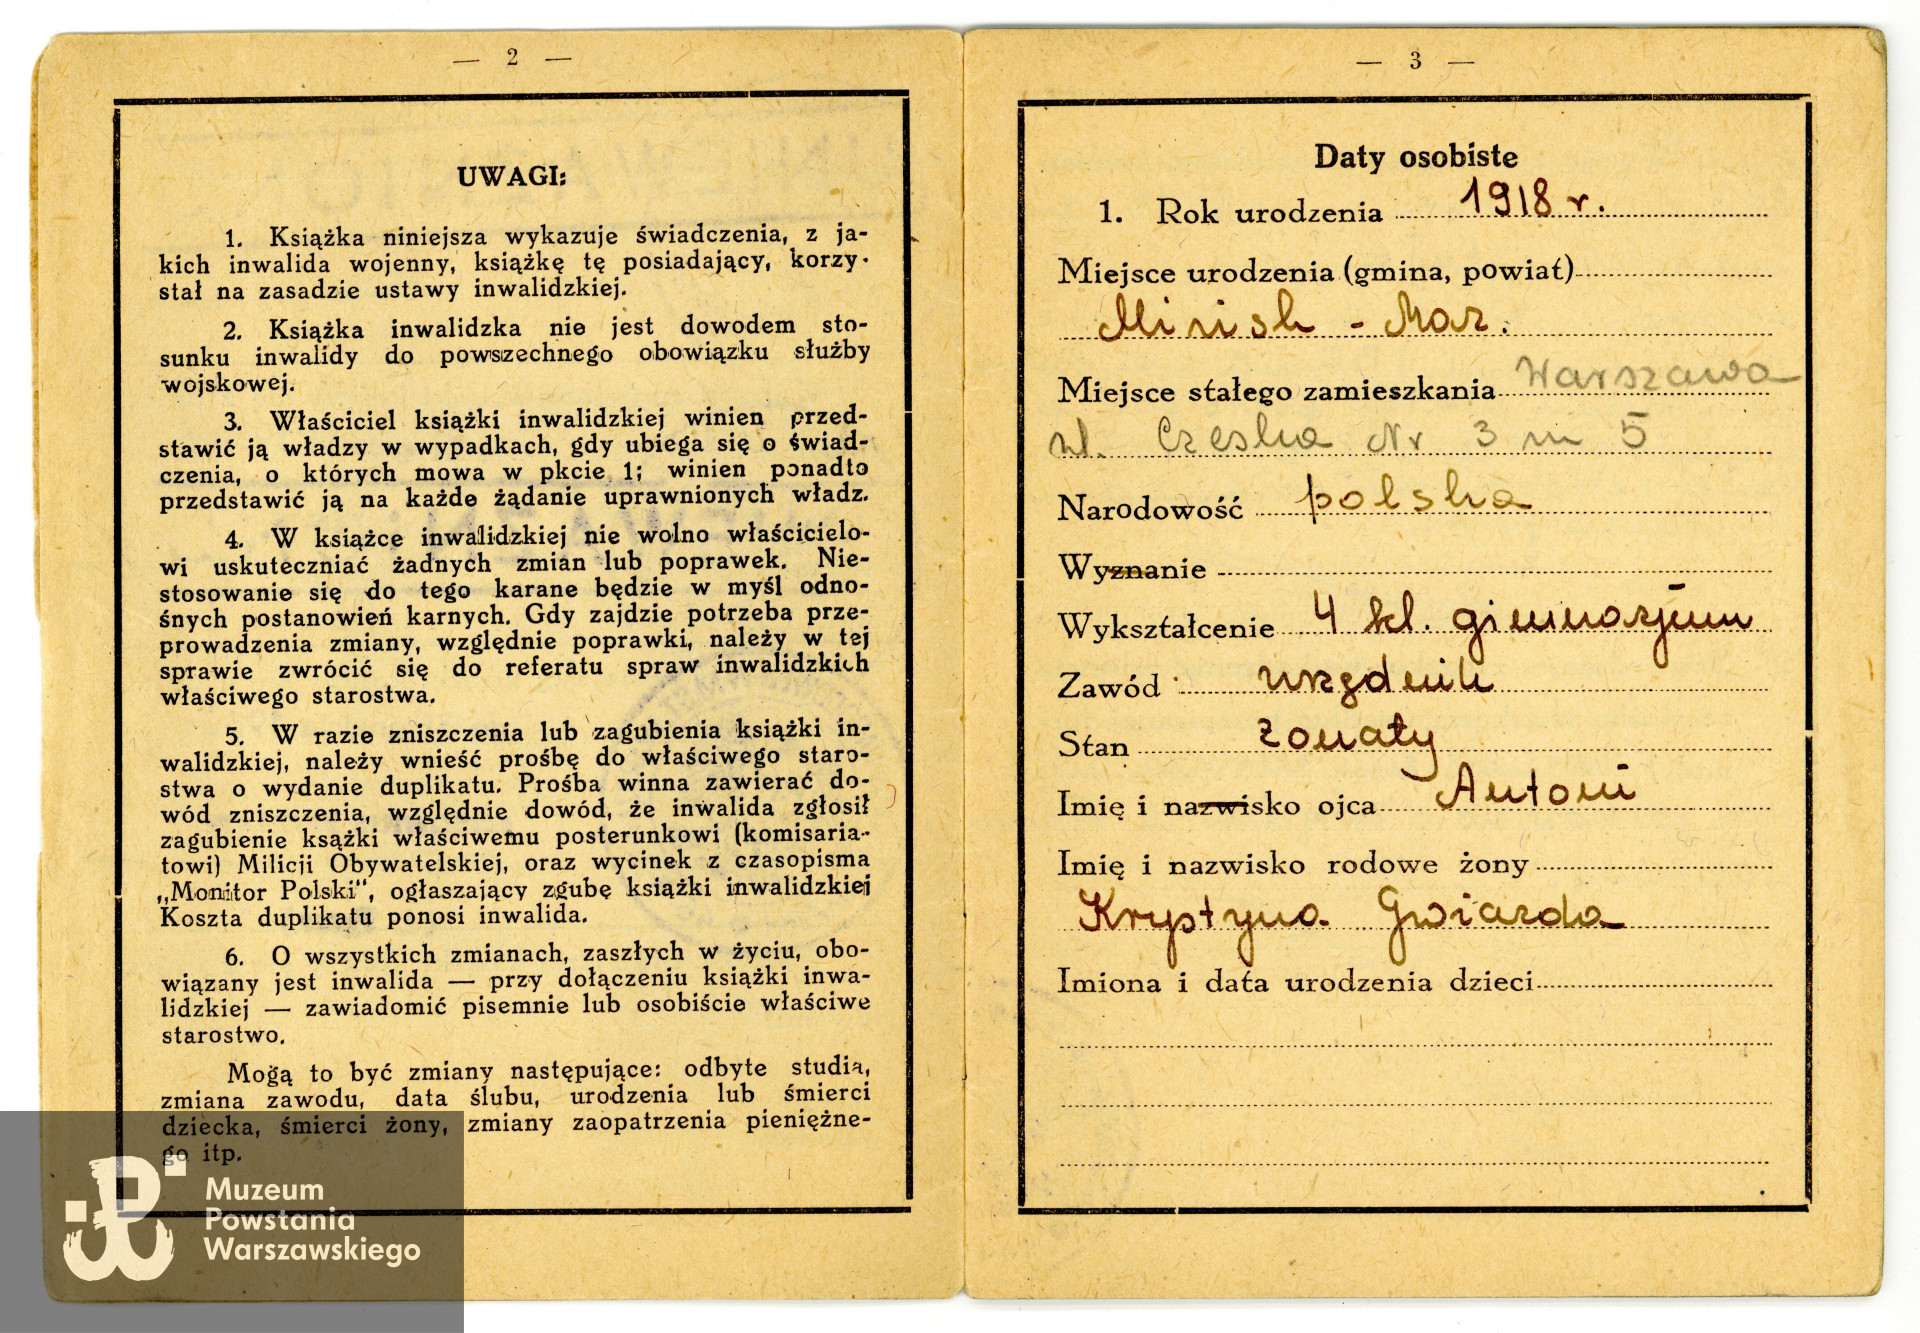 — 2 —
UWAGI:
1. Książka niniejsza wykazuje świadczenia, z ja-
kich inwalida wojenny, książkę tę posiadający, korzy-
stał na zasadzie ustawy inwalidzkiej.
2. Książka inwalidzka nie jest dowodem sto-
sunku inwalidy do powszechnego obowiązku służby
wojskowej.
3. Właściciel książki inwalidzkiej winien przed-
stawić ją władzy w wypadkach, gdy ubiega się o świad-
czenia, o których mowa w pkcie 1; winien ponadto
przedstawić ją na każde żądanie uprawnionych władz.
4. W książce inwalidzkiej nie wolno właścicielo-
wi uskuteczniać żadnych zmian lub poprawek. Nie-
stosowanie się do tego karane będzie w myśl odno-
śnych postanowień karnych. Gdy zajdzie potrzeba prze-
prowadzenia zmiany, względnie poprawki, należy w tej
sprawie zwrócić się do referatu spraw inwalidzkich
właściwego starostwa.
5. W razie zniszczenia lub zagubienia książki in-
walidzkiej, należy wnieść prośbę do właściwego staro-
stwa o wydanie duplikatu. Prośba winna zawierać do-
wód zniszczenia, względnie dowód, że inwalida zgłosił
zagubienie ksążki właściwemu posterunkowi (komisaria-
towi) Milicji Obywatelskiej, oraz wycinek z czasopisma
„Monitor Polski", ogłaszający zgubę książki inwalidzkiej
Koszta duplikatu ponosi inwalida.
6. O wszystkich zmianach, zaszłych w życiu, obo-
wiązany jest inwalida — przy dołączeniu książki inwa-
lidzkiej — zawiadomić pisemnie lub osobiście właściwe
starostwo.
Mogą to być zmiany następujące: odbyte studia,
zmiana zawodu, data ślubu, urodzenia lub śmierci
dziecka, śmierci żony, zmiany zaopatrzenia pieniężne-
go itp.
Muzeum
Powstania
Warszawskiego
— 3 —
Daty osobiste
1. Rok urodzenia 1918 r.
Miejsce urodzenia (gmina, powiat)
Minisk - Maz.
Miejsce stałego zamieszkania Warszawa
ul. Czeska Nr 3 m 5
Narodowość polska
Wyznanie
Wykształcenie 4 kl. gimnazjum
Zawód urzędnik
Stan żonaty
Imię i nazwisko ojca Antoni
Imię i nazwisko rodowe żony
Krystyna Gwiazda
Imiona i data urodzenia dzieci